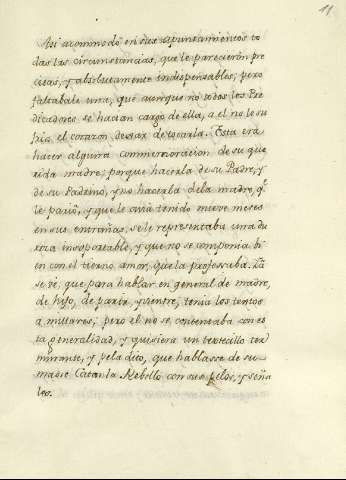 11
Asi acommodò en sus apuntamientos to
das las circunstancias, que le parecieron pre
cisas, y absolutamente indispensables; pero
faltabale una, que aunque no todos los Pre
dicadores se hacian cargo de ella, a el no le su
fria el corazon dexar de tocarla. Esta era
hacer alguna commemoracion de su que
rida madre; porque hacerla de su Padre, y
de su Padrino, y no hacerla de la madre, qe.
le pariò, y que le avia tenido nueve meses
en sus entrañas, se le representaba una du
reza insoportable, y que no se componia bi
en con el tierno amor, que la professaba. Ya
se vè, que para hablar en general de madre,
de hijo, de parir, y vientre, tenia los textos
a millares; pero el no se contentaba con es
ta generalidad, y quisiera un textecillo ter
minante, y pela dito, que hablasse de su
madre Catanla Rebollo con sus pelos, y seña
les.